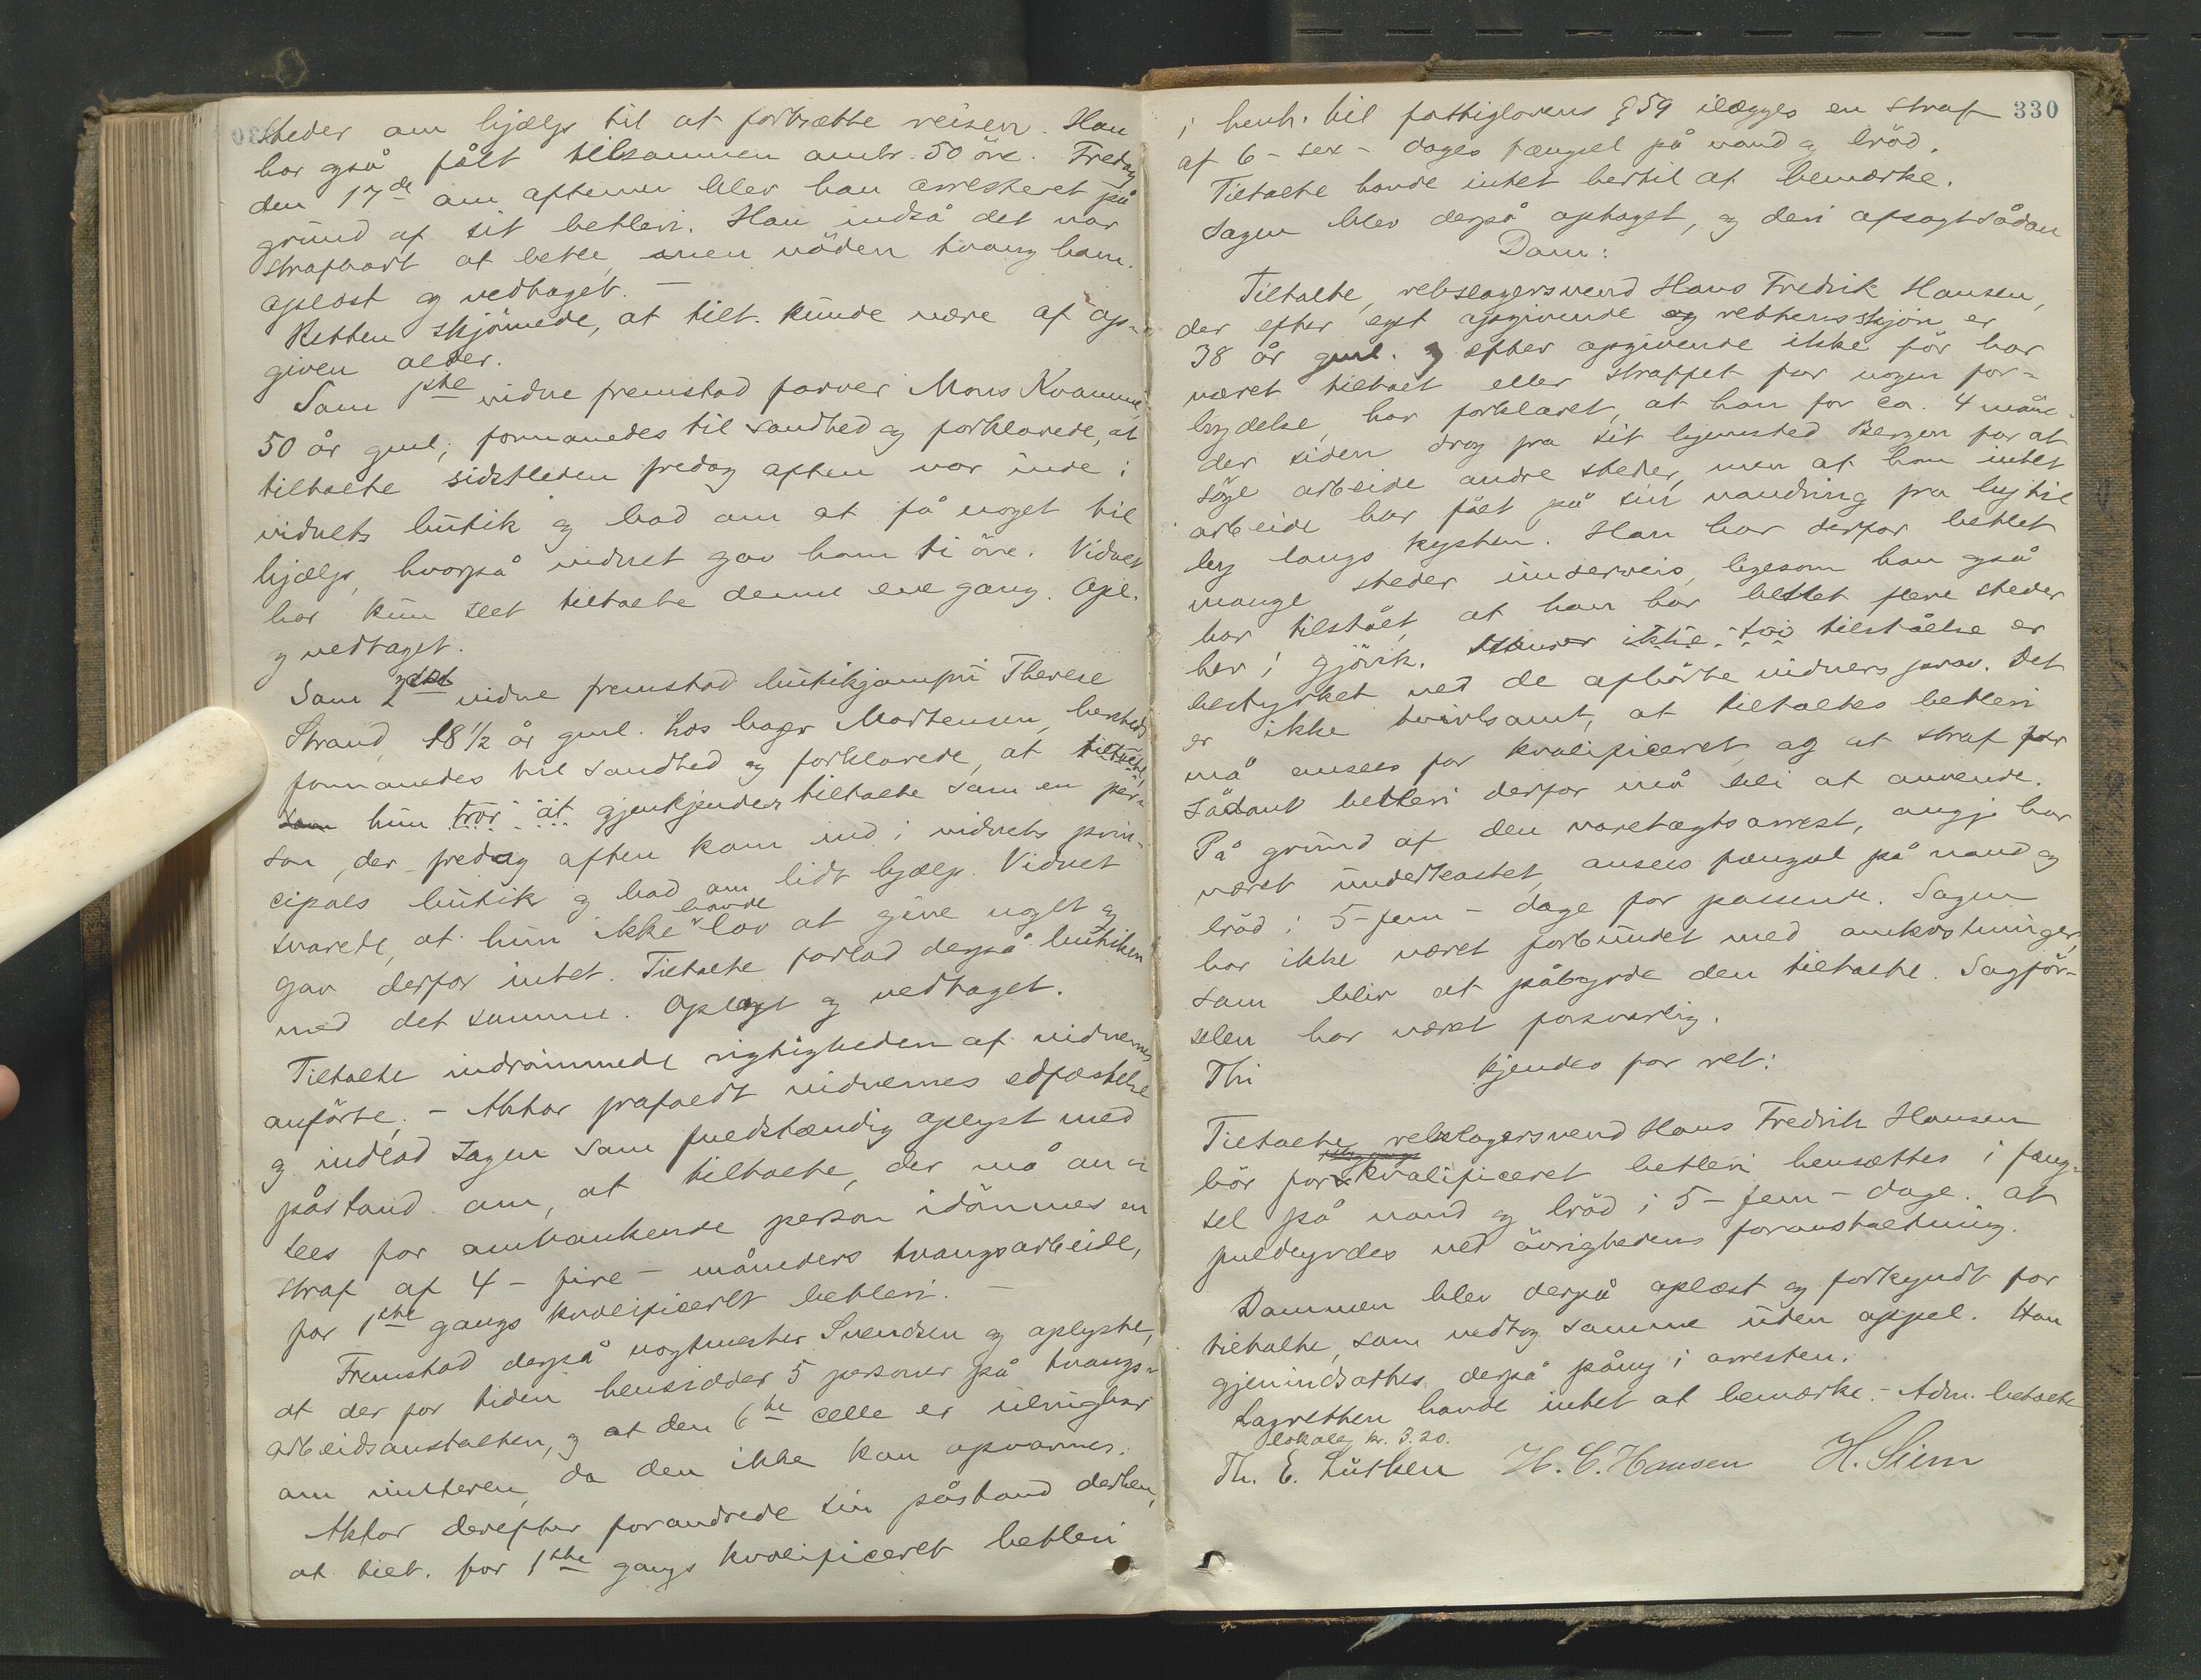 steder om hjælp til at fortsætte reisen. Han
har også fået tilsammen omtr. 50 öre. Fredag
den 17de om aftenen blev han arresteret på
grund af sit betleri. Han indså det var
strafbart at betle, men nöden tvang ham.
oplæst og vedtaget. —
Retten skjönnede, at tilt. kunde være af op-
given alder.
Som 1ste vidne fremstod farver Mons Kvamme
50 år gml; formanedes til sandhed og forklarede, at
tiltalte sidstleden fredag aften var inde i
vidnets butik og bad om at få noget til
hjælp, hvorpå vidnet gav ham ti öre. Vidnet
har kun seet tiltalte denne ene gang. Opl.
og vedtaget.
Som 2det vidne fremstod butikjomfru Therese
Strand, 18 1/2 år gml. hos bager Mortensen, hersteds
formanedes til sandhed og forklarede, at tiltalte,
som hun tror at gjenkjender tiltalte som en per-
son, der fredag aften kom ind i vidnets prin-
cipals butik og bad om lidt hjælp. Vidnet
svarede, at hun ikke havde lov at give noget og
gav derfor intet. Tiltalte forlod derpå butiken
med det samme. Oplæst og vedtaget.
Tiltalte indrömmede rigtigheden af vidnernes
anförte. – Aktor frafaldt vidnernes edfæstelse
og indlod sagen som fuldstændig oplyst med
påstand om, at tiltalte, der må an-
sees for omvankende person idömmes en
straf af 4 - fire - måneders tvangsarbeide,
for 1ste gangs kvalificeret betleri. —
Fremstod derpå vogtmester Svendsen og oplyste,
at der for tiden hensidder 5 personer på tvangs-
arbeidsanstalten, og at den 6te celle er ubrugbar
om vinteren, da den ikke kan opvarmes.
Aktor derefter forandrede sin påstand derhen,
at tilt. for 1ste gangs kvalificeret betleri
330
i henh. til fattiglovens § 59 ilægges en straf
af 6 - sex - dages fængsel på vand og bröd.
Tiltalte havde intet hertil at bemærke.
Sagen blev derpå optaget, og deri afsagt sådan
Dom:
Tiltalte, rebslagersvend Hans Fredrik Hansen,
der efter eget opgivende og rettens skjön er
38 år gml. og efter opgivende ikke för har
været tiltalt eller straffet for nogen for-
brydelse, har forklaret, at han for ca. 4 måne-
der siden drog fra sit hjemsted Bergen for at
söge arbeide andre steder, men at han intet
arbeide har fået på sin vandring fra by til
by langs kysten. Han har derfor betlet
mange steder underveis, ligesom han også
har tilstået, at han har betlet flere steder
her i Gjövik. Hans ikke tvi tilståelse er
bestyrket ved de afhörte vidners prov. Det
er ikke tvivlsomt, at tiltaltes betleri
må ansees for kvalificeret og at straf for
sådant betleri derfor må bli at anvende.
På grund af den varetægtsarrest, angj. har
været underkastet, ansees fængsel på vand og
bröd i 5 - fem - dage for passende. Sagen
har ikke været forbundet med omkostninger,
som bliv at påbyrde den tiltalte. Sagför-
selen har været forsvarlig.
Thi kjendes for ret:
Tiltalte, rebslagersvend Hans Fredrik Hansen
bör for kvalificeret betleri hensættes i fæng-
sel på vand og bröd i 5 - fem - dage. At
fuldbyrdes ved övrighedens foranstaltning.
Dommen blev derpå oplæst og forkyndt for
tiltalte, som vedtog samme uden appel. Han
gjenindsattes derpå påny i arresten.
Lagretten havde intet at bemærke. – Adm. betalte
lokale kr. 3.20.
Th. E. Lütken H. C. Hansen H. Siem